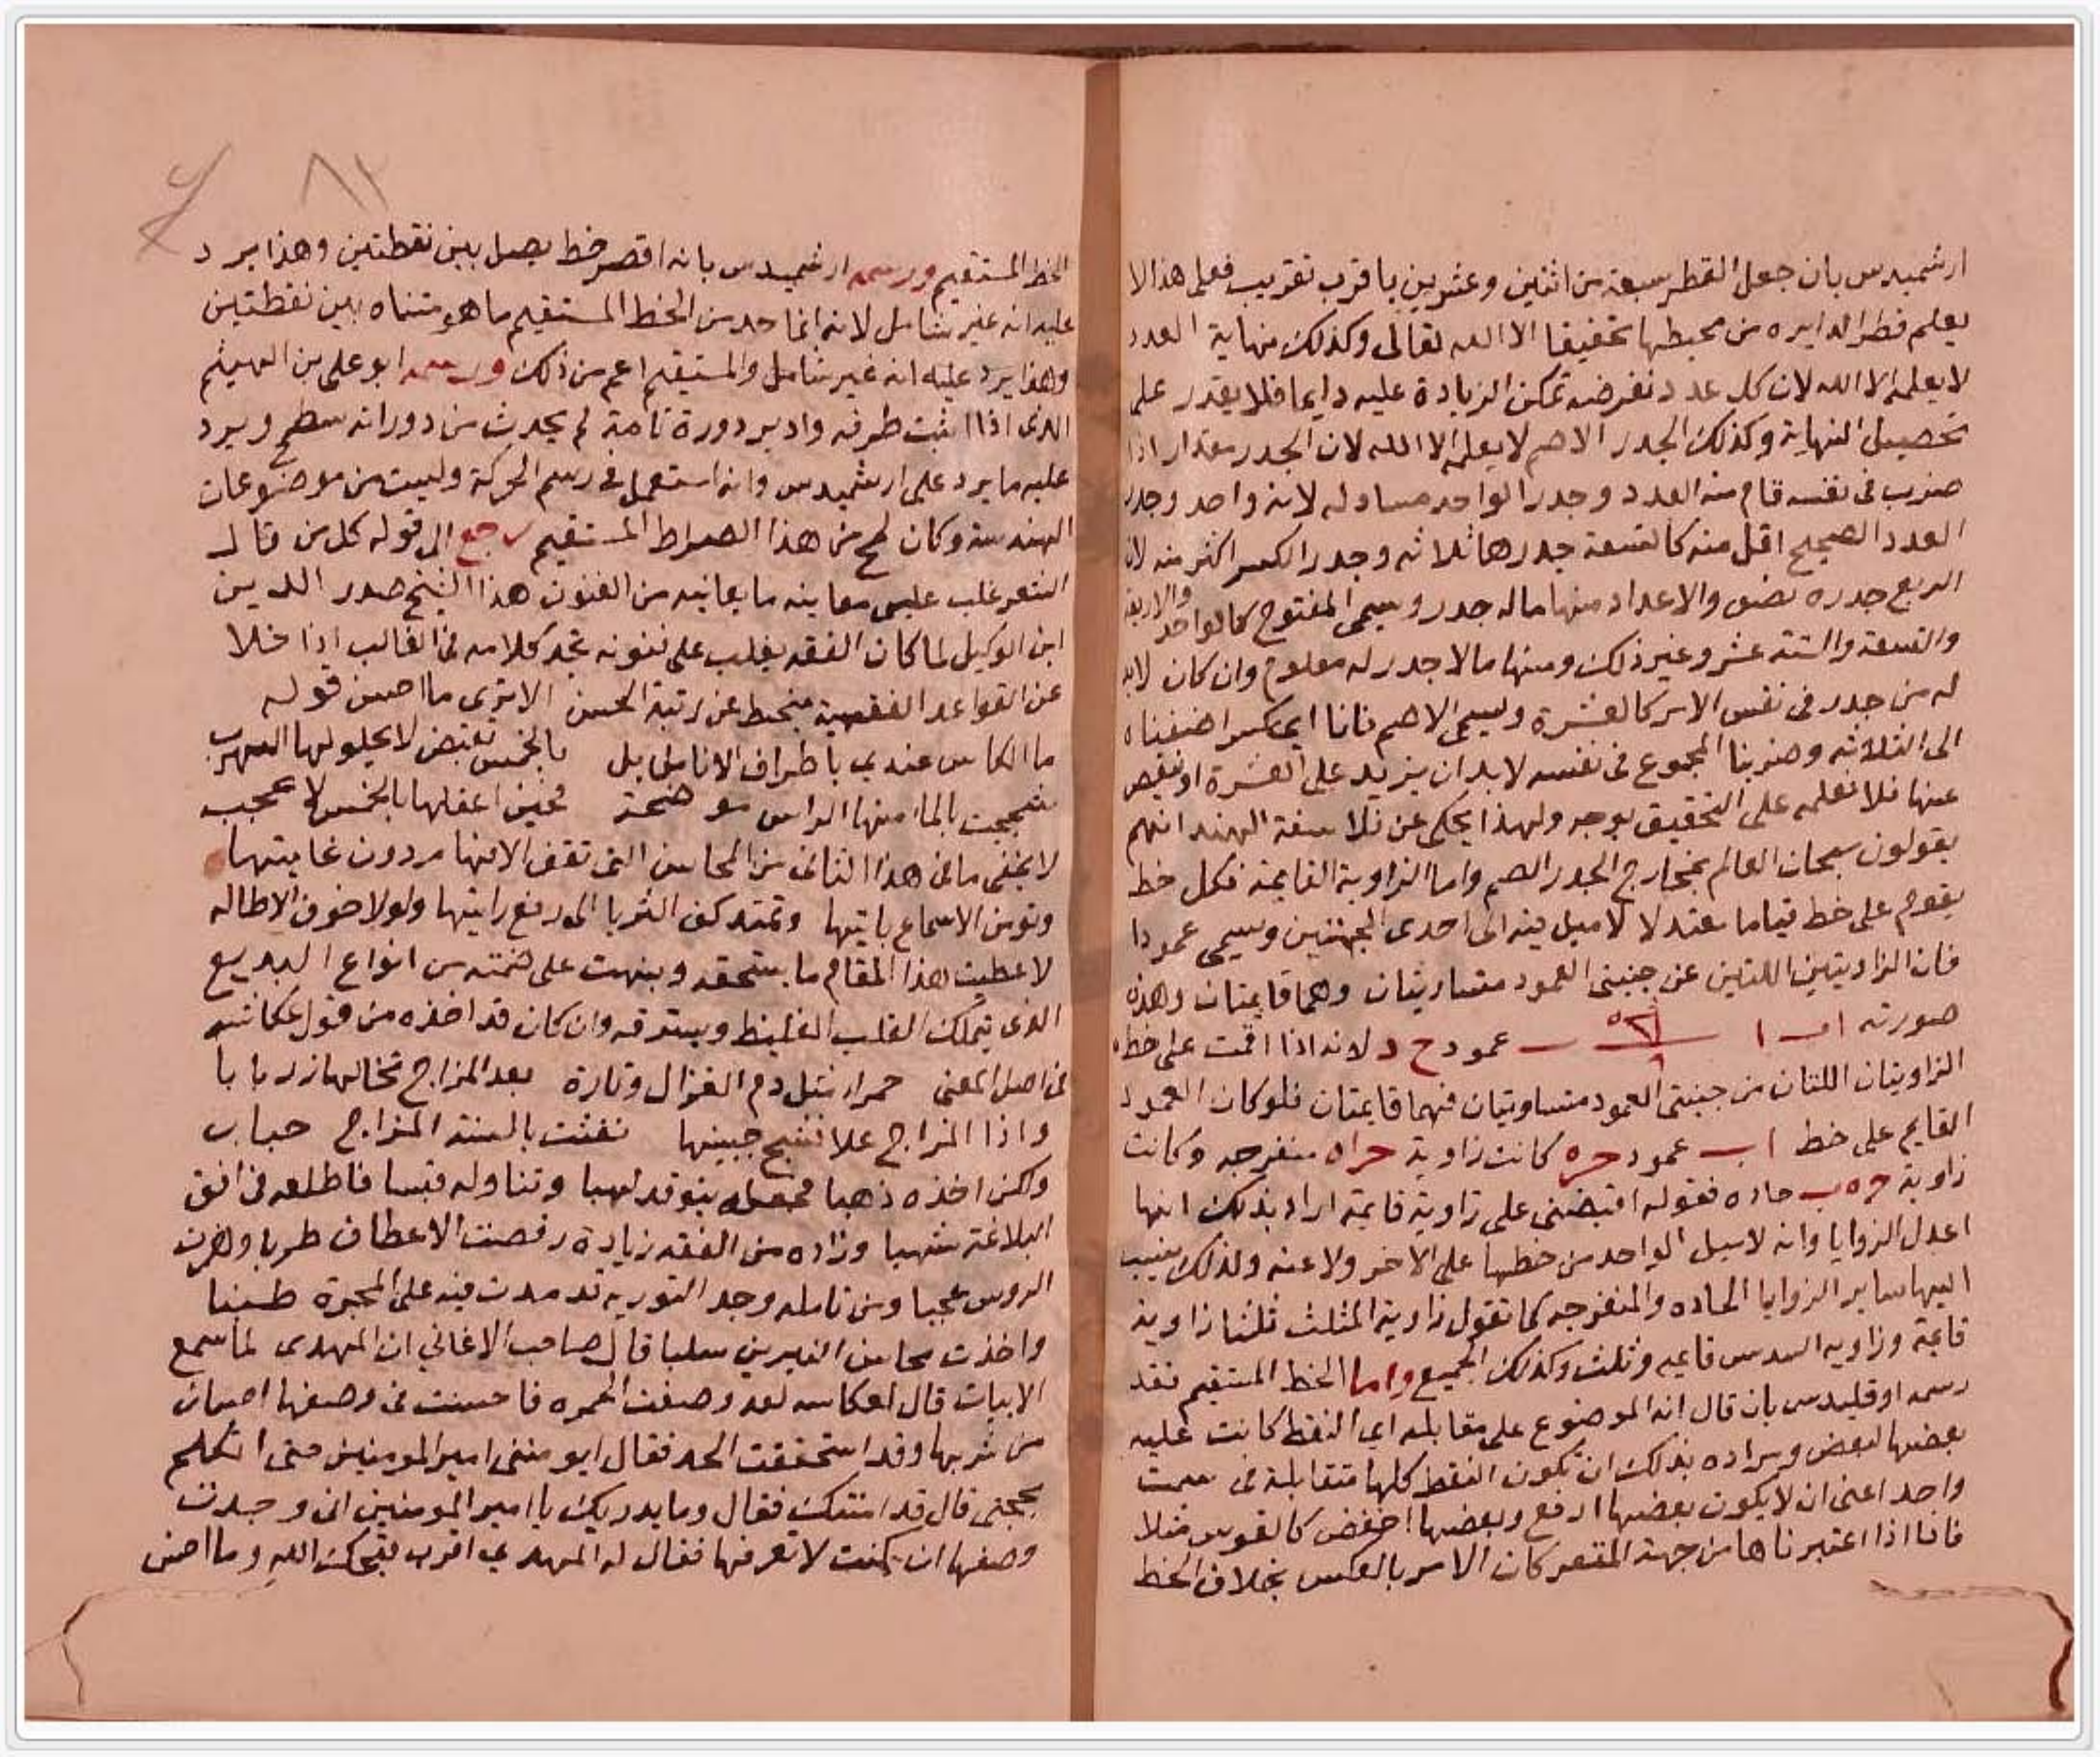 ارشميدس بان جعل القطر سبعة من اثنين وعشرين با قرب تقريب فعلى هذا لا
يعلم قطر الدايره من محيطها تحقيقا الا الله تعالى وكذلك نهاية العدد
لا يعلمه الا الله لان كل عدد نفرضه تمكن الزيادة عليه دايما فلا يقدر على
تحصيل النهاية وكذلك الجدر الاصم لا يعلمه الا الله لان الجدر مقدار اذا
ضرب فى نفسه قام منه العدد وجدر الواحد مساو له لانه واحد وجدر
العدد الصحيح اقل منه كالتسعة جدرها ثلاثه وجدر الكسر اكثر منه لان
الربع جدره نصف والاعداد منها ماله جدر ويسمى المفتوح كالواحد والاربعة
والتسعة والستة عشر وغير ذلك ومنها مالا جدر له معلوم وان كان لابد
له من جدر فى نفس الامر كالعشرة ويسمى الاصم فانا اى كسر اضفناه
الى الثلاثه وضربنا المجموع فى نفسه لابد ان يزيد على العشرة او ينقص
عنها فلا نعلمه على التحقيق بوجه ولهذا يحكى عن فلاسفة الهند انهم
يقولون سبحان العالم بمخارج الجدر الاصم واما الزاوية القايمة فكل خط
يقوم على خط قياما معتدلا لا ميل فيه الى احدى الجهتين ويسمى عمودا
فان الزاويتين اللتين عن جنبتى العمود متساويتان وهما قايمتان وهذه
صورته ا ب عمود ح د لانه اذا اقمت على خط
الزاويتان اللتان من جنبتى العمود متساويتان فهما قايمتان فلو كان العمود
القايم على خط ا ب عمود ح ه كانت زاوية ح ا ه منفرجه وكانت
زاوية ح ه ب حاده فقوله اقبضنى على زاوية قايمة اراد بذلك انها
اعدل الزوايا وانه لا ميل لواحد من خطيها على الاخر ولا عنه ولذلك ينسب
اليها ساير الزوايا الحاده والمنفرجه كما تقول زاوية المثلث ثلثا زاوية
قايمة وزاويه المسدس قايمه وثلث وكذلك الجميع واما الخط المستقيم فقد
رسمه اوقليدس بان قال انه الموضوع على مقابلة اي النقط كانت عليه
بعضها لبعض ومراده بذلك ان تكون النقط كلها متقابلة فى سمت
واحد اعنى ان لا يكون بعضها ارفع وبعضها اخفض كالقوس مثلا
فانا اذا اعتبرناها من جهة المقعر كان الامر بالعكس بخلاف الخط
٨٢
الخط المستقيم ورسمه ارشميدس بانه اقصر خط يصل بين نقطتين وهذا يرد
عليه انه غير شامل لانه انما حد من الخط المستقيم ما هو متناه بين نقطتين
وهذا يرد عليه انه غير شامل والمستقيم اعم من ذلك ورسمه ابو على بن الهيثم
الذى اذا اثبت طرفه وادير دورة تامة لم يحدث من دورانه سطح ويرد
عليه ما يرد على ارشميدس وانه استعمل فى رسم الحركة وليست من موضوعات
الهندسة وكان لمح من هذا الصراط المستقيم رجع الى قوله كل من قال
الشعر غلب عليه معاينه ما يعانيه من الفنون هذا الشيخ صدر الدين
ابن الوكيل لما كان الفقه يغلب على فنونه تجد كلامه فى الغالب اذا خلا
عن القواعد الفقهية منحط عن رتبة الحسن الا ترى ما احسن قوله
ما الكاس عندى باطراف الانامل بل بالخمس تقبض لا يحلو لها الهرب
شججت بالما منها الراس موضحة فحين اعقلها بالخمس لا عجب
لا يخفى ما فى هذا الثانى من المحاسن التى تقف الافهام دون غايتها
وتومن الاسماع باياتها وتمتد كف الثريا الى رفع رايتها ولولا خوف الاطاله
لاعطيت هذا المقام ما يستحقه ونبهت على ضمنه من انواع البديع
الذى يتملك القلب الغليظ ويسترقه وان كان قد اخذه من قول عكاشه
فى اصل المعنى حمرا مثل دم الغزال وتارة بعد المزاج تخالها زريابا
واذا المزاج علا فشج جبينها نفثت بالسنة المزاج حبابا
ولكن اخذه ذهبا فجعله يتوقد لهبا وتناوله قبسا فاطلعه فى افق
البلاغة شهبا وزاده من الفقه زيادة رقصت الاعطاف طربا وهزت
الروس عجبا ومن تامله وجد التوريه قد مدت فيه على المجرة طنبا
واخذت محاسن النيرين سلبا قال صاحب الاغانى ان المهدى لما سمع
الابيات قال لعكاشه لقد وصفت الخمره فاحسنت فى وصفها احسان
من شربها وقد استحققت الحد فقال ايومننى امير المومنين حتى اتكلم
بحجتى قال قد امنتك فقال وما يدريك يا امير المومنين انى وجدت
وصفها ان كنت لا تعرفها فقال له المهدى اغرب قبحك الله وما احسن